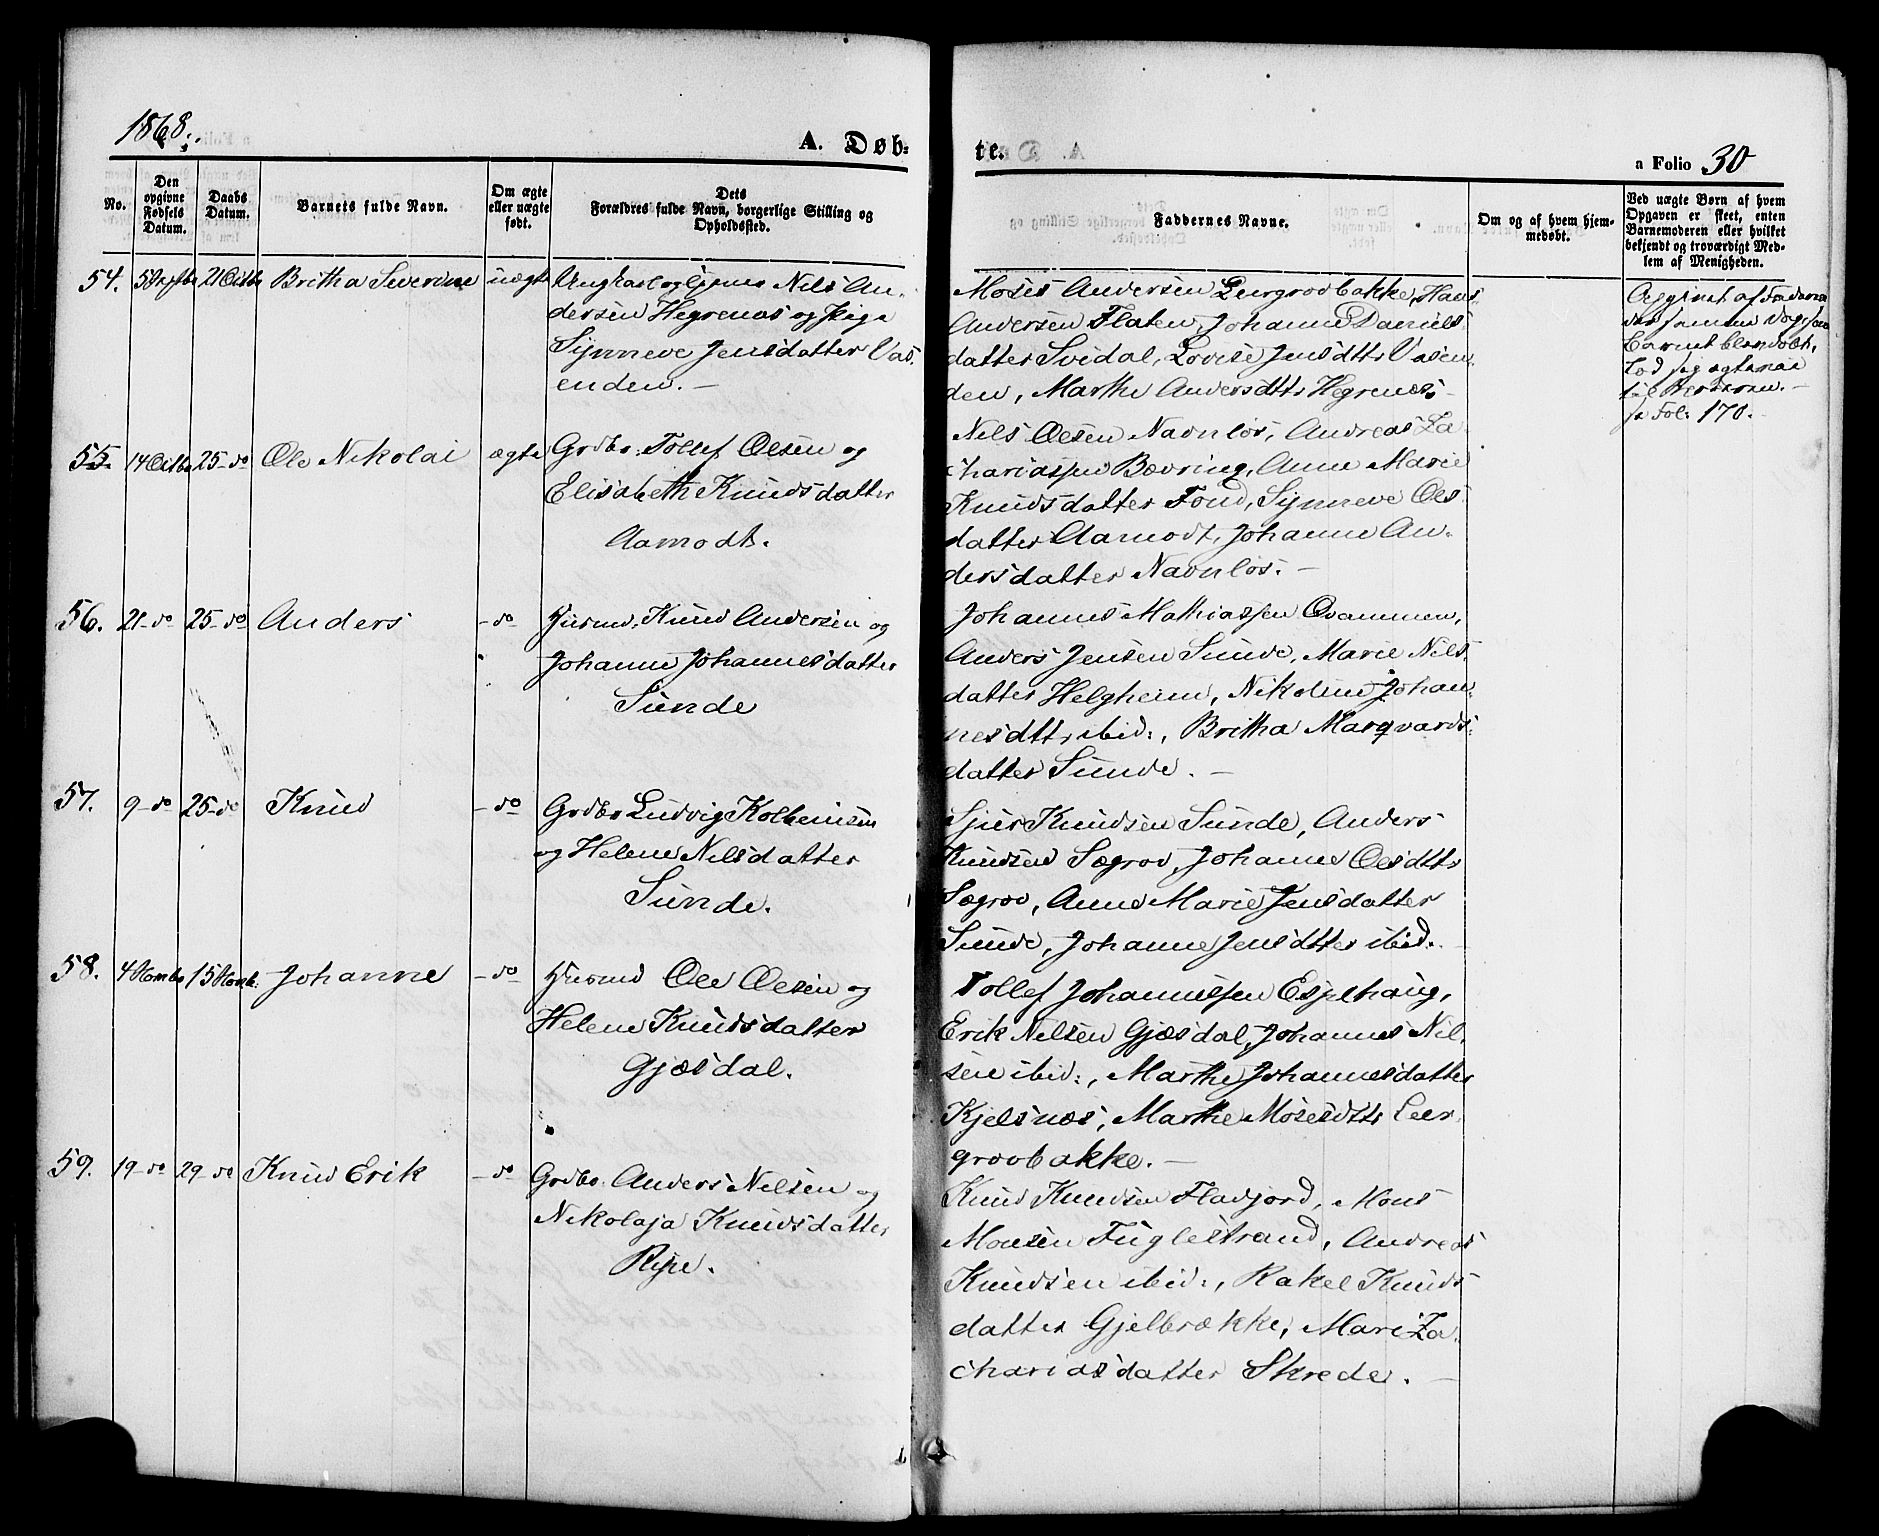 1868.
A. Døb-
te.
a Folio 30
No.
Den opgivne Fødsels Datum.
Daabs Datum.
Barnets fulde Navn.
Om ægte eller uægte født.
Dets
Forældres fulde Navn, borgerlige Stilling og
Opholdssted.
Faddernes Navne.
Om og af hvem hjem-
medøbt.
Ved uægte Børn af hvem
Opgaven er skeet, enten
Barnemoderen eller hvilket
bekjendt og troværdigt Med-
lem af Menigheden.
54. 21 Octbr Britha Severine uægte
Ungkarl og Nils An-
dersen Hegrenæs og Pige
Synneve Jensdatter Vas-
enden. –
Moses Andersen Leergrovbakke, Hans
Andersen Flaten, Johanne Daniels
datter Svidal, Lovise Jensdttr Vasen
den, Marthe Andersdttr Hegrenæs
Opgivet af Faderen
Barnet blev døbt,
lod sig
til Alteren. –
se Fol. 170. –
55. 14 Octbr 25 do Ole Nikolai ægte
Grdbr. Tollef Olsen og
Elisabeth Knudsdatter
Aamodt.
Nils Olsen Navnløs, Andreas Za
chariassen Bævring, Anne Marie
Knudsdatter Fond, Synneve Ols
datter Aamodt, Johanne An-
dersdatter Navnløs. –
56. 21 do 25 do Anders – do
Husmd. Knud Andersen og
Johanne Johannesdatter
Sunde
Johannes Mathiassen Qvammen,
Anders Jensen Sunde, Marie Nils
datter Helgheim, Nikoline Johan
nesdttr ibid:, Britha Marqvards
datter Sunde. –
57. 9 do 25 do Knud – do
Grdbr Ludvig Kolbeinsen
og Helene Nilsdatter
Sunde.
Sjur Knudsen Sunde, Anders
Knudsen Søgrov, Johanne Olsdttr
Søgrov, Anne Marie Jensdatter
Sunde, Johanne Jensdtter ibid.
58. 4 Novmbr 15 Novmb. Johanne – do
Husmd Ole Olsen og
Helene Knudsdatter
Gjæsdal.
Tollef Johannessen Espehaug,
Erik Nilsen Gjæsdal, Johannes Nil-
sen ibid:, Marthe Johannesdatter
Kjelsnæs, Marthe Mosesdttr Leer
grovbakke. –
59. 19 do 29 do Knud Erik – do
Grdbr. Anders Nilsen og
Nikolaja Knudsdatter
Ripe.
Knud Knudsen Fladjord, Mons
Monsen Fuglestrand, Andreas
Knudsen ibid:, Rakel Knuds
datter Gjelbrække, Mari Za-
chariasdatter Skrede. –